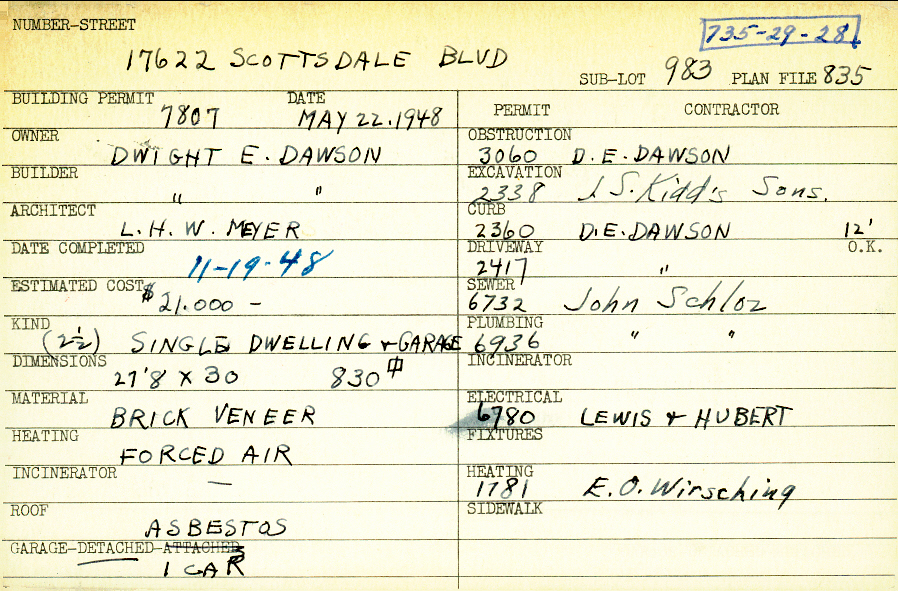 NUMBER-STREET
735-29-28
17622 SCOTTSDALE BLVD
SUB-LOT 983 PLAN FILE 835
BUILDING PERMIT DATE
7807 MAY 22.1948
OWNER
DWIGHT E. DAWSON
BUILDER
" "
ARCHITECT
L. H. W. MEYER
DATE COMPLETED
11-19-48
ESTIMATED COST
$21.000 -
KIND
(2½) SINGLE DWELLING + GARAGE
DIMENSIONS
27'8 X 30 830
MATERIAL
BRICK VENEER
HEATING
FORCED AIR
INCINERATOR
—
ROOF
ASBESTOS
GARAGE-DETACHED-ATTACHED
1 CAR
PERMIT CONTRACTOR
OBSTRUCTION
3060 D.E. DAWSON
EXCAVATION
2338 J.S. Kidd's Sons.
CURB
2360 D.E. DAWSON 12'
DRIVEWAY O.K.
2417 "
SEWER
6732 John Schloz
PLUMBING
6936 " "
INCINERATOR
ELECTRICAL
6780 LEWIS + HUBERT
FIXTURES
HEATING
1781 E.O. Wirsching
SIDEWALK